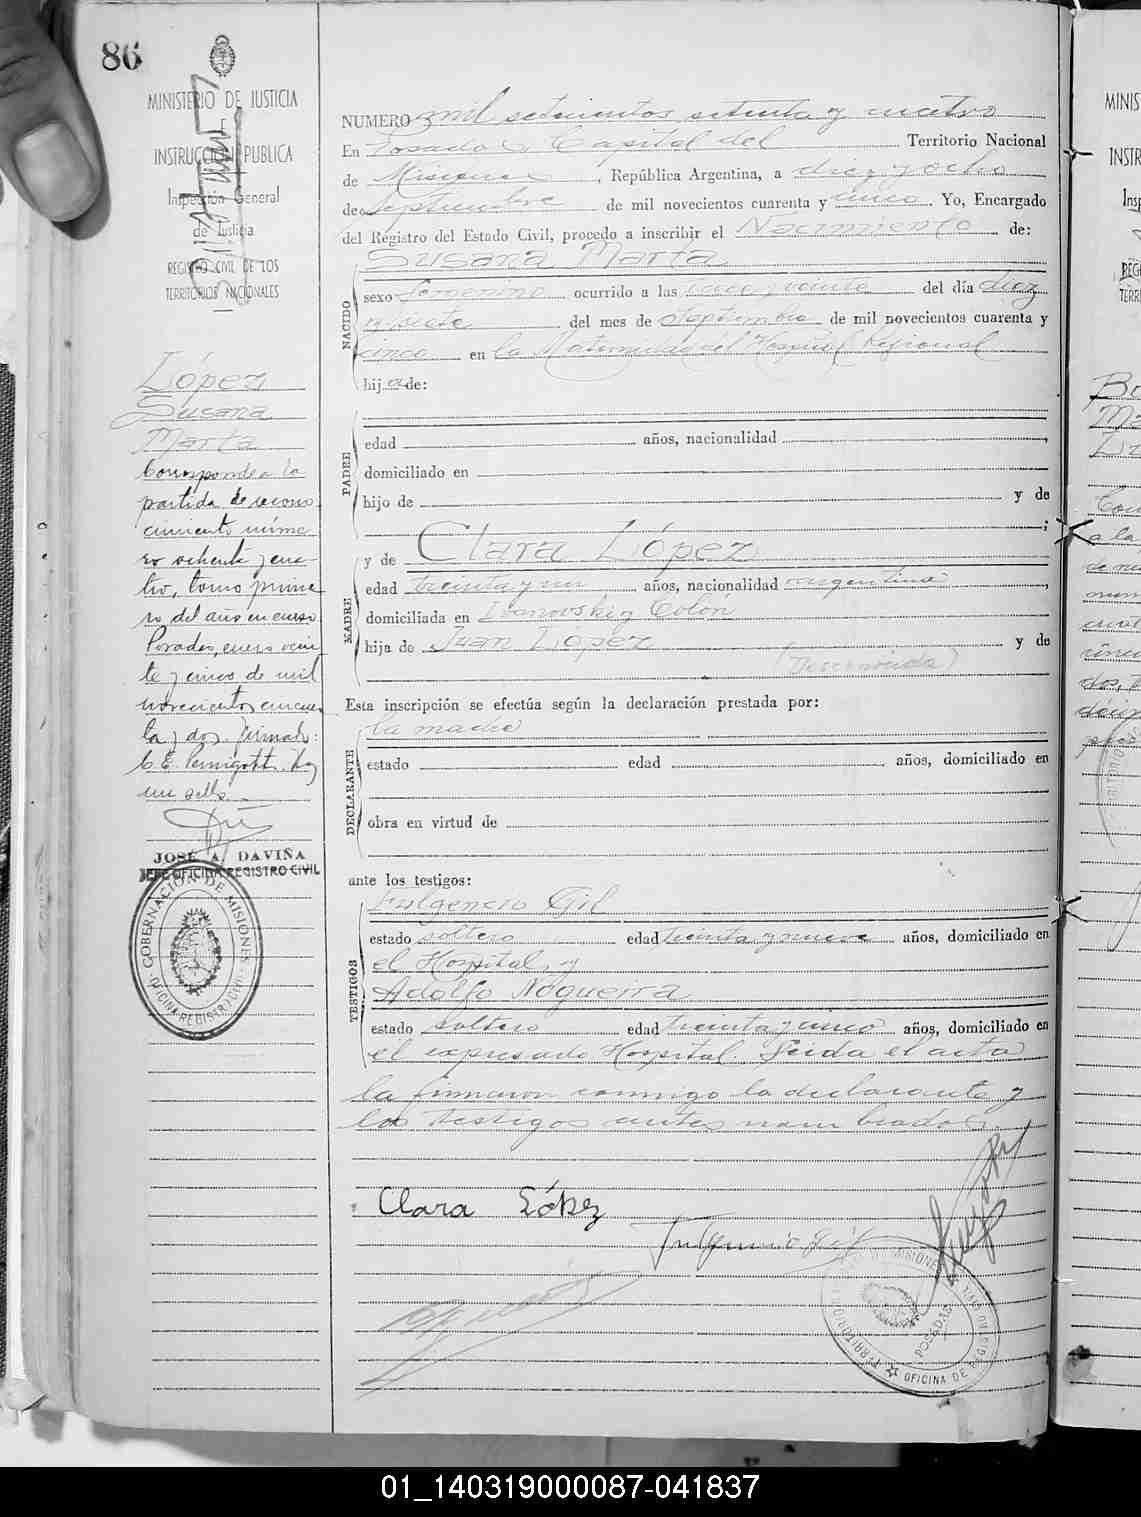 86
MINISTERIO DE JUSTICIA
INSTRUCCION PUBLICA
Inspección General
de Justicia
REGISTRO CIVIL DE LOS
TERRITORIOS NACIONALES
NUMERO mil setecientos setenta y cuatro
En Posadas Capital del Territorio Nacional
de Misiones, República Argentina, a diez y ocho
de septiembre de mil novecientos cuarenta y cinco Yo, Encargado
del Registro del Estado Civil, procedo a inscribir el Nacimiento de:
NACIDO
Susana Marta
sexo femenino ocurrido a las once y veinte del día diez
y siete del mes de Septiembre de mil novecientos cuarenta y
cinco en la Maternidad del Hospital Regional
hija de:
PADRE
edad años, nacionalidad
domiciliado en
hijo de y de
MADRE
y de Clara López
edad treinta y un años, nacionalidad argentina
domiciliada en Colón
hija de Juan López y de
(Desconocida)
Esta inscripción se efectúa según la declaración prestada por:
DECLARANTE
la madre
estado edad años, domiciliado en
obra en virtud de
ante los testigos:
TESTIGOS
Fulgencio Gil
estado soltero edad treinta y nueve años, domiciliado en
el Hospital, y
Adolfo Noguerra
estado soltero edad treinta y cinco años, domiciliado en
el expresado Hospital. Leida el acta
la firmaron conmigo la declarante y
los testigos antes nombrados.
Clara López
Fulgencio Gil
López
Susana
Marta
Corresponde a la
partida de recono
cimiento núme
ro ochenta y cua
tro, tomo prime
ro del año en curso
Posadas, enero vein
te y cinco de mil
novecientos cincuen
ta y dos. firmado:
C. E. Hay
un sello.
JOSÉ A. DAVIÑA
JEFE OFICINA REGISTRO CIVIL
GOBERNACION DE MISIONES
OFICINA REGISTRO CIVIL
POSADAS
MINIS
INSTR
Insp
REG
TERRI
01_140319000087-041837